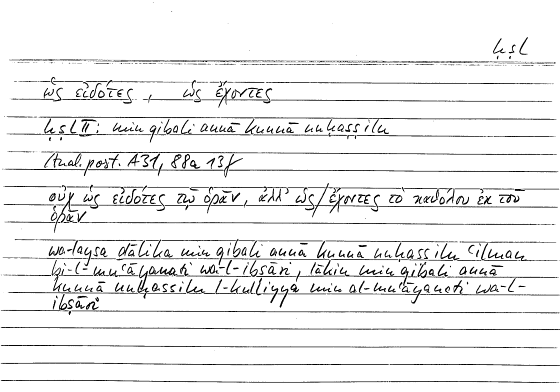 ḥṣl
ὡς εἰδότες, ὡς ἔχοντες
ḥṣl II: min qibali annā kunnā nuḥaṣṣilu
Anal. post. A31, 88a 13f
οὐχ ὡς εἰδότες τῷ ὁρᾶν, ἀλλ' ὡς/ἔχοντες τὸ καθόλου ἐκ τοῦ
ὁρᾶν
wa-laysa ḏālika min qibali annā kunnā nuḥaṣṣilu ʿilman
bi-l-muʿāyanati wa-l-ibṣāri, lākin min qibali annā
kunnā nuḥaṣṣilu l-kulliyya min al-muʿāyanati wa-l-
ibṣāri